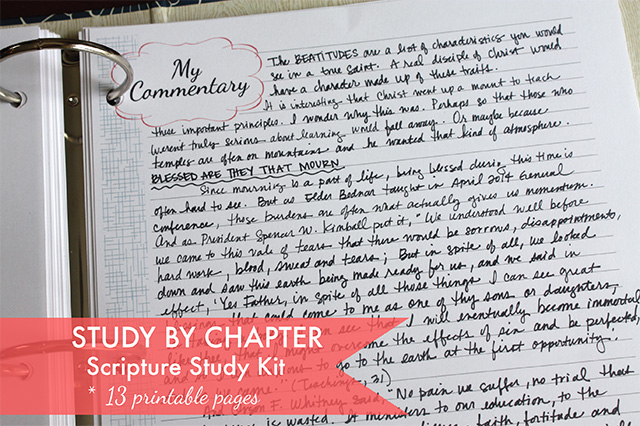 My
Commentary
The BEATITUDES are a list of characteristics you would
see in a true saint. A real disciple of Christ would
have a character made up of these traits.
It is interesting that Christ went up a mount to teach
these important principles. I wonder why this was. Perhaps so that those who
werent truly serious about learning would fall away. Or maybe because
temples are often on mountains and he wanted that kind of atmosphere.
BLESSED ARE THEY THAT MOURN
Since mourning is a part of life, being blessed during this time is
often hard to see. But as Elder Bednar taught in April 2014 General
conference, those burdens are often what actually gives us momentum.
And as President Spencer W. Kimball put it, "We understood well before
we came to this vale of tears that there would be sorrows, disappointments,
hard work, blood, sweat and tears; But in spite of all, we looked
down and saw this earth being made ready for us, and we said in
effect, 'Yes Father, in spite of all those things I can see great
blessings that could come to me as one of thy sons or daughters,
see that I will eventually become immortal
like thee, that I might overcome the effects of sin and be perfected,
to go to the earth at the first opportunity.
same." (Teachings, 31)
And Orson F. Whitney said, "No pain we suffer, no trial that
is wasted. It ministers to our education, to the
faith, fortitude and
STUDY BY CHAPTER
Scripture Study Kit
* 13 printable pages